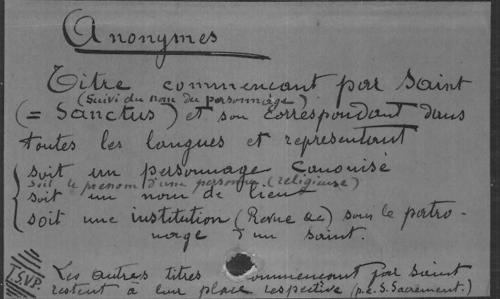 Anonymes
Titre commençant par Saint
(suivi du nom du personnage)
(= Sanctus) et son correspondant dans
toutes les langues et représentant
soit un personnage canonisé
soit le prénom d'une personne (religieuse)
soit un nom de lieu
soit une institution (Revue &c) sous le patro-
nage d'un saint.
T.S.V.P. Les autres titres commençant par Saint
restent à leur place respective (p.e. S. Sacrement.)